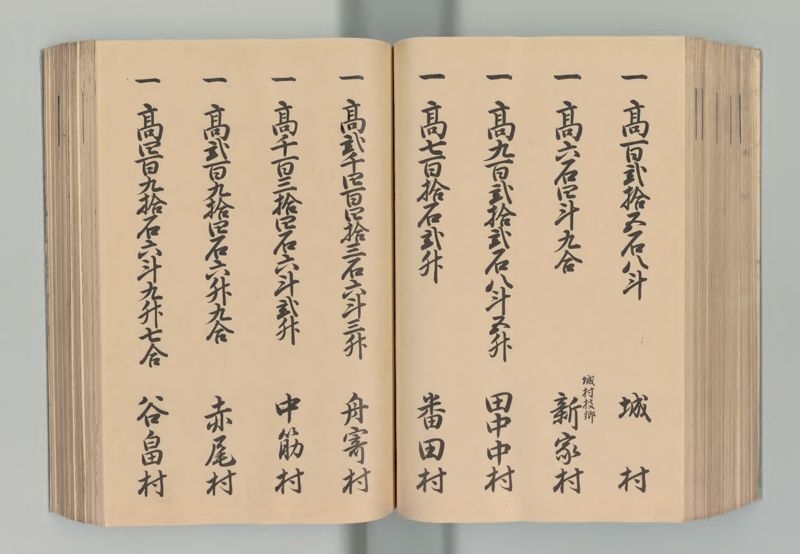 一 高百弐拾五石八斗 城村
一 高六石四斗九合 城村枝郷 新家村
一 高九百弐拾弐石八斗五升 田中中村
一 高七百拾石弐升 番田村
一 高弐千四百四拾三石六斗三升 舟寄村
一 高千百三拾四石六斗弐升 中筋村
一 高弐百九拾四石六升九合 赤尾村
一 高四百九拾石六斗九升七合 谷畠村